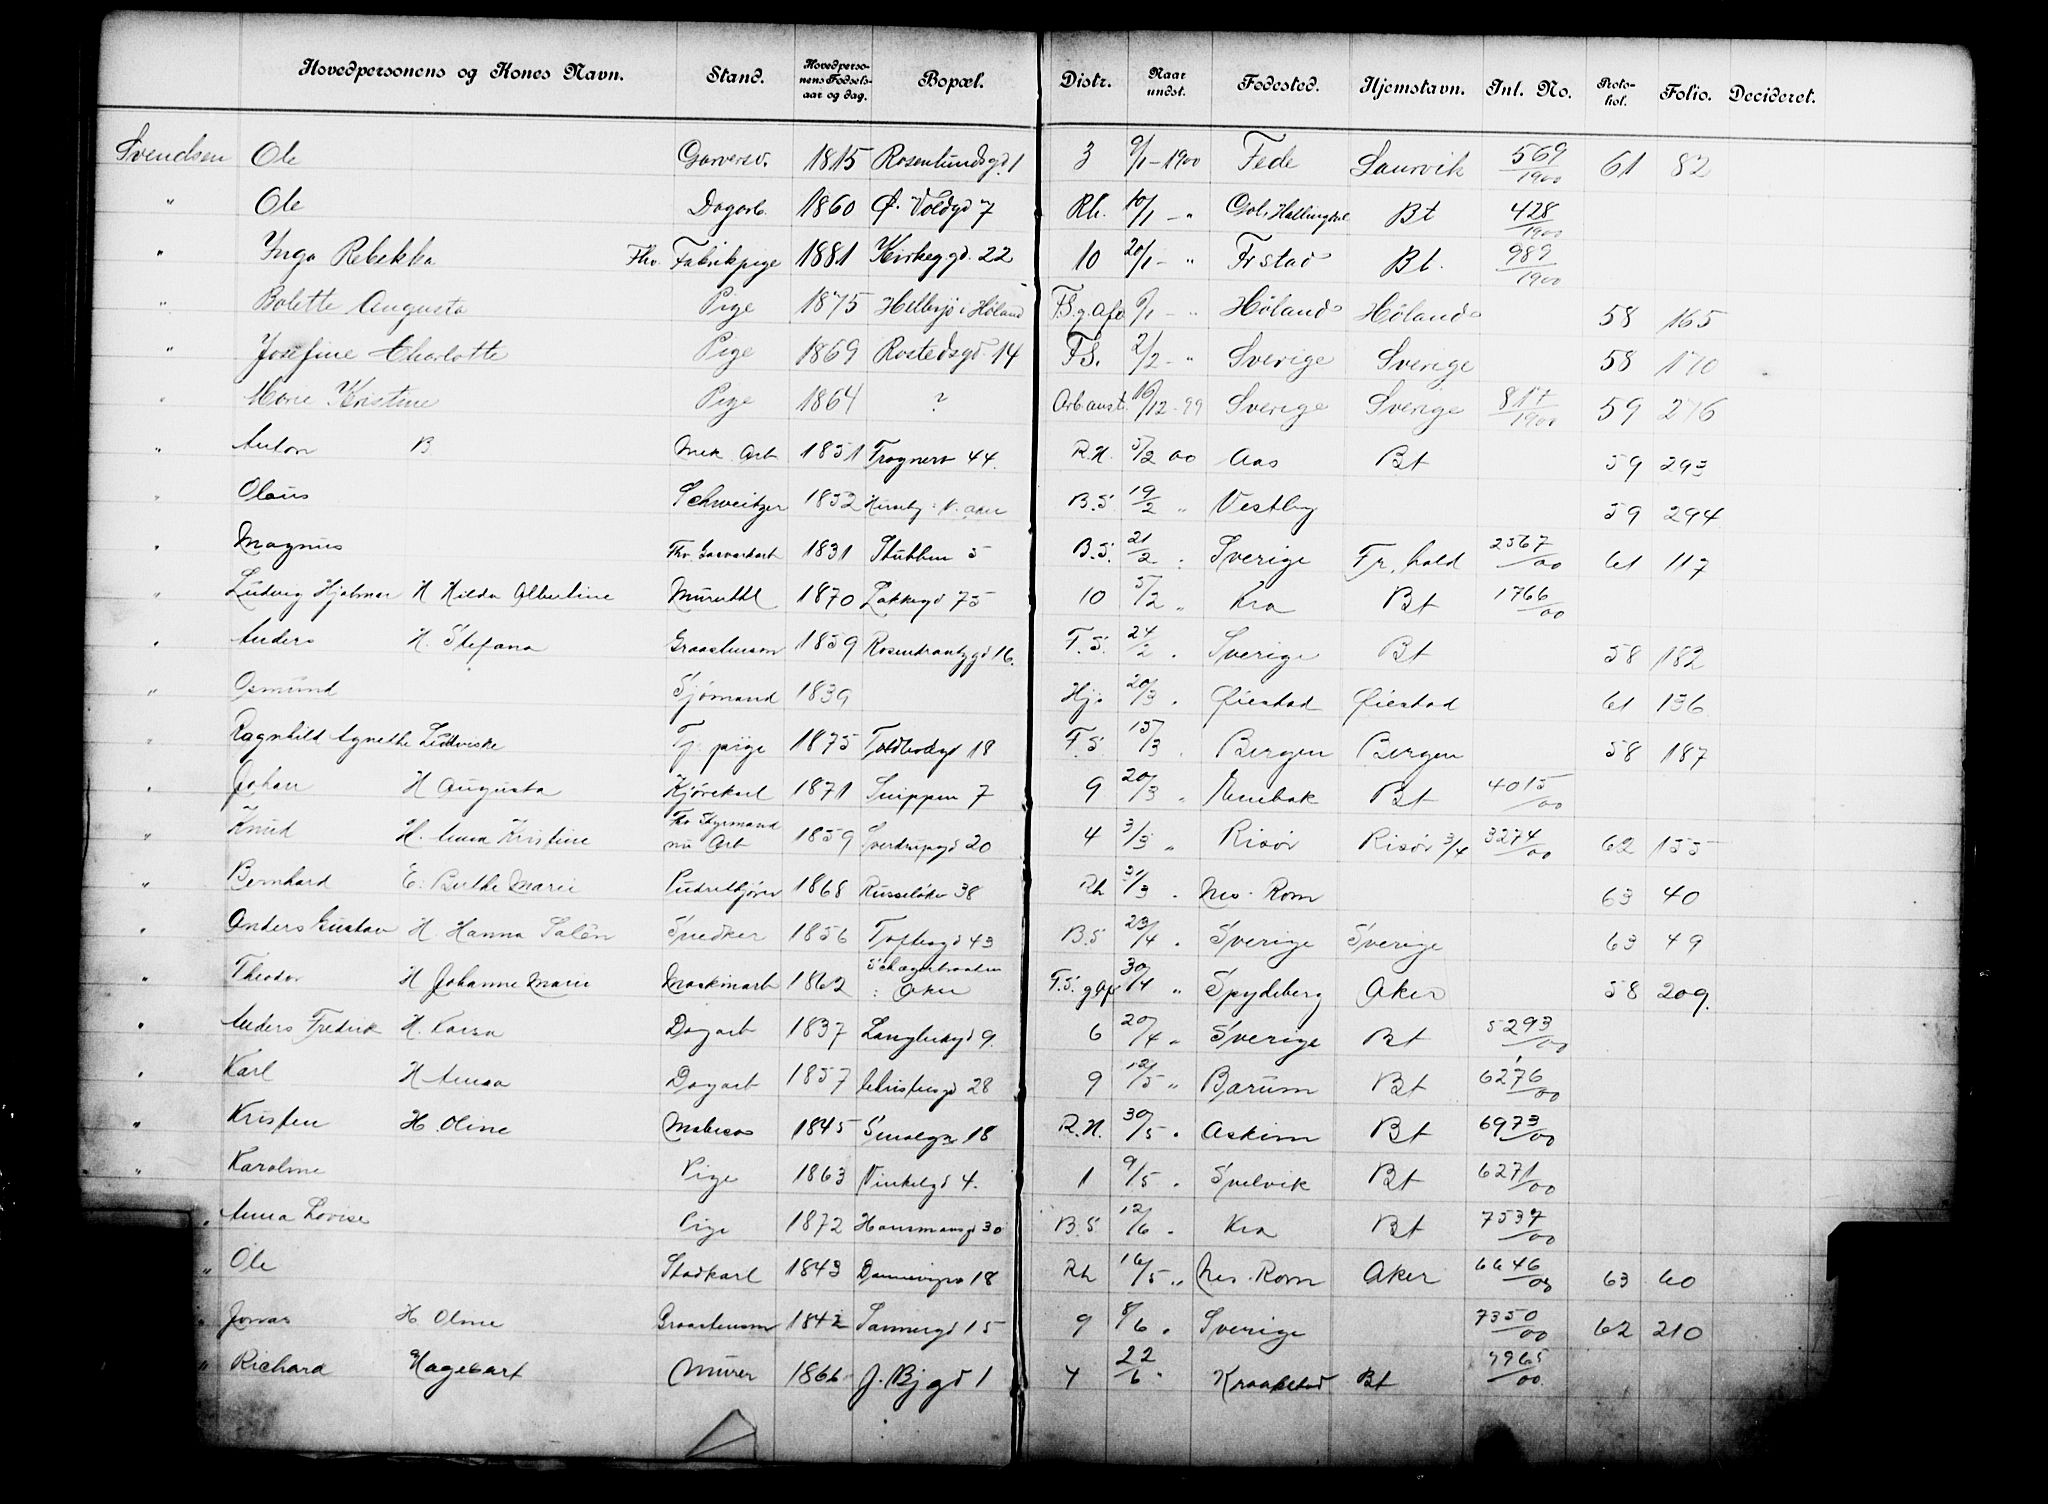 Hovedpersonens og Kones Navn. Stand. Hovedperso-nens Fødsels-aar og dag. Bopæl. Distr. Naar undst. Fødested. Hjemstavn. Int. No. Proto-kol. Folio. Decideret.
Svendsen Ole Garversv. 1815 Rosenlundsgd. 1 3 9/1-1900 Fede Laurvik 569/1900 61 82
" Ole Dagarb. 1860 Ø. Voldgd 7 Rh. 10/1 - " Gol, Hallingdal Bt 428/1900
" Inga Rebekka Fhv. Fabrikpige 1881 Kirkeggd. 22 10 20/1 - " Frstad Bt. 989/1900
" Bolette Augusta Pige 1875 Hellesjø i Høland F.S. g. Afd 6/1 - " Høland Høland 58 165
" Josefine Charlotte Pige 1869 Rostedsgd. 14 F.S. 2/2 - " Sverige Sverige 58 170
" Marie Kristine Pige 1864 ? Arb.anst. 16/12-99 Sverige Sverige 817/1900 59 276
" Anton B Mek. Arb 1851 Frognerv 44. R.H. 5/2 00 Aas Bt 59 293
" Olaus Schweitzer 1852 B.S. 19/2 " Vestby 59 294
" Magnus Fhv. 1831 Stubben 5 B.S. 21/2 " Sverige Fr.hald 2567/00 61 117
" Ludvig Hjalmar H Hilda Albertine Murarb 1870 Lakkegd 75 10 5/2 " Kra Bt 1766/00
" Anders H. Stefana Graastensm 1859 Rosenkrantzgd 16. F.S. 24/2 " Sverige Bt 58 182
" Osmund Sjømand 1839 Hjs 20/3 " Øiestad Øiestad 61 136
" Ragnhild Agnethe Ludviske Tj. pige 1875 Toldbodgd 18 F.S 15/3 " Bergen Bergen 58 187
" Johan H Augusta Kjørekarl 1871 Snippen 7 9 20/3 " Enebak Bt 4015/00
" Knud H. Anna Kristine Fhv. Styrmand nu Arb 1859 Sverdrupsgd 20 4 3/3 " Risør Risør 3/4 3274/00 62 155
" Bernhard E. Berthe Marie 1868 Russeløkv 38 Rh 31/3 " Nes. Rom 63 40
" Anders Gustav H. Hanna Salén Snedker 1856 Toftesgd 43 B.S 23/4 " Sverige Sverige 63 49
" Theodor H Johanne Marie Maskinarb 1862 i Aker F.S. g Afd 30/4 " Spydeberg Aker 58 209
" Anders Fredrik H. Kaisa Dagarb 1837 Langleikgd 9. 6 20/4 " Sverige Bt 5293/00
" Karl H Anna Dagarb 1857 Christiesgd 28 9 12/5 " Bærum Bt 6276/00
" Kristen H. Oline Malersv 1845 Smalgn 18 R.H. 30/5 " Askim Bt 6973/00
" Karoline Pige 1863 Vinkelgd 4. 1 9/5 " Svelvik Bt 6271/00
" Anna Lovise Pige 1872 Hausmansgd 30 B.S 12/6 " Kra Bt 7537/00
" Ole Stadkarl 1843 Dannevigsv 18 Rh 16/5 " Nes. Rom Aker 6646/00 63 60
" Jonas H Oline Graastensm 1842 Sannergd 15 9 8/6 " Sverige 7350/00 62 210
" Richard Hagebart Murer 1866 J. Bjgd 1 4 22/6 " Kraakstad Bt 7965/00